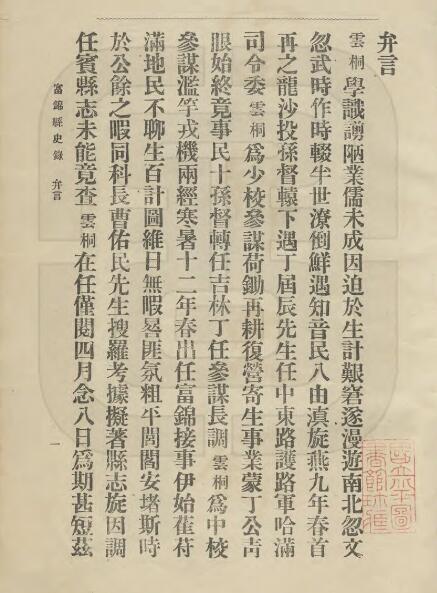 弁言
雲桐學識譾陋業儒未成因迫於生計艱窘遂漫遊南北忽文
忽武時作時輟半世潦倒鮮遇知音民八由滇旋燕九年春首
再之龍沙投孫督轅下遇丁屆辰先生任中東路護路軍哈滿
司令委雲桐爲少校參謀荷鋤再耕復營寄生事業蒙丁公靑
眼始終竟事民十孫督轉任吉林丁任參謀長調雲桐爲中校
參謀濫竽戎機兩經寒暑十二年春出任富錦接事伊始萑苻
滿地民不聊生百計圖維日無暇晷匪氛粗平閭閻安堵斯時
於公餘之暇同科長曹佑民先生搜羅考據擬著縣志旋因調
任賓縣志未能竟查雲桐在任僅閱四月念八日爲期甚短茲
富錦縣史錄 弁言
一